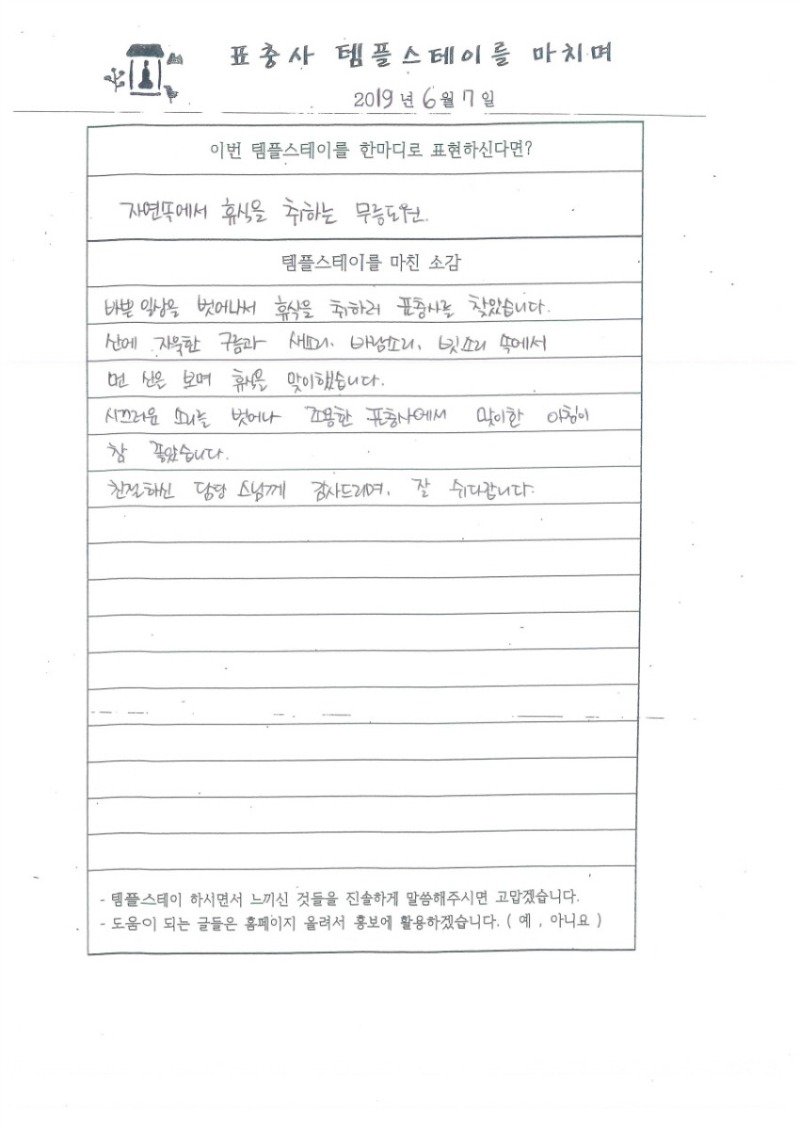 표충사 템플스테이를 마치며
2019년 6월 7일
이번 템플스테이를 한마디로 표현하신다면?
자연속에서 휴식을 취하는 무릉도원.
템플스테이를 마친 소감
바쁜 일상을 벗어나서 휴식을 취하러 표충사를 찾았습니다.
산에 자욱한 구름과 새소리, 바람소리, 빗소리 속에서
먼 산을 보며 휴식을 맞이했습니다.
시끄러운 소리는 벗어나 조용한 표충사에서 맞이한 아침이
참 좋았습니다.
친절하신 담당 스님께 감사드리며, 잘 쉬다갑니다.
- 템플스테이 하시면서 느끼신 것들을 진솔하게 말씀해주시면 고맙겠습니다.
- 도움이 되는 글들은 홈페이지 올려서 홍보에 활용하겠습니다. ( 예 , 아니요 )